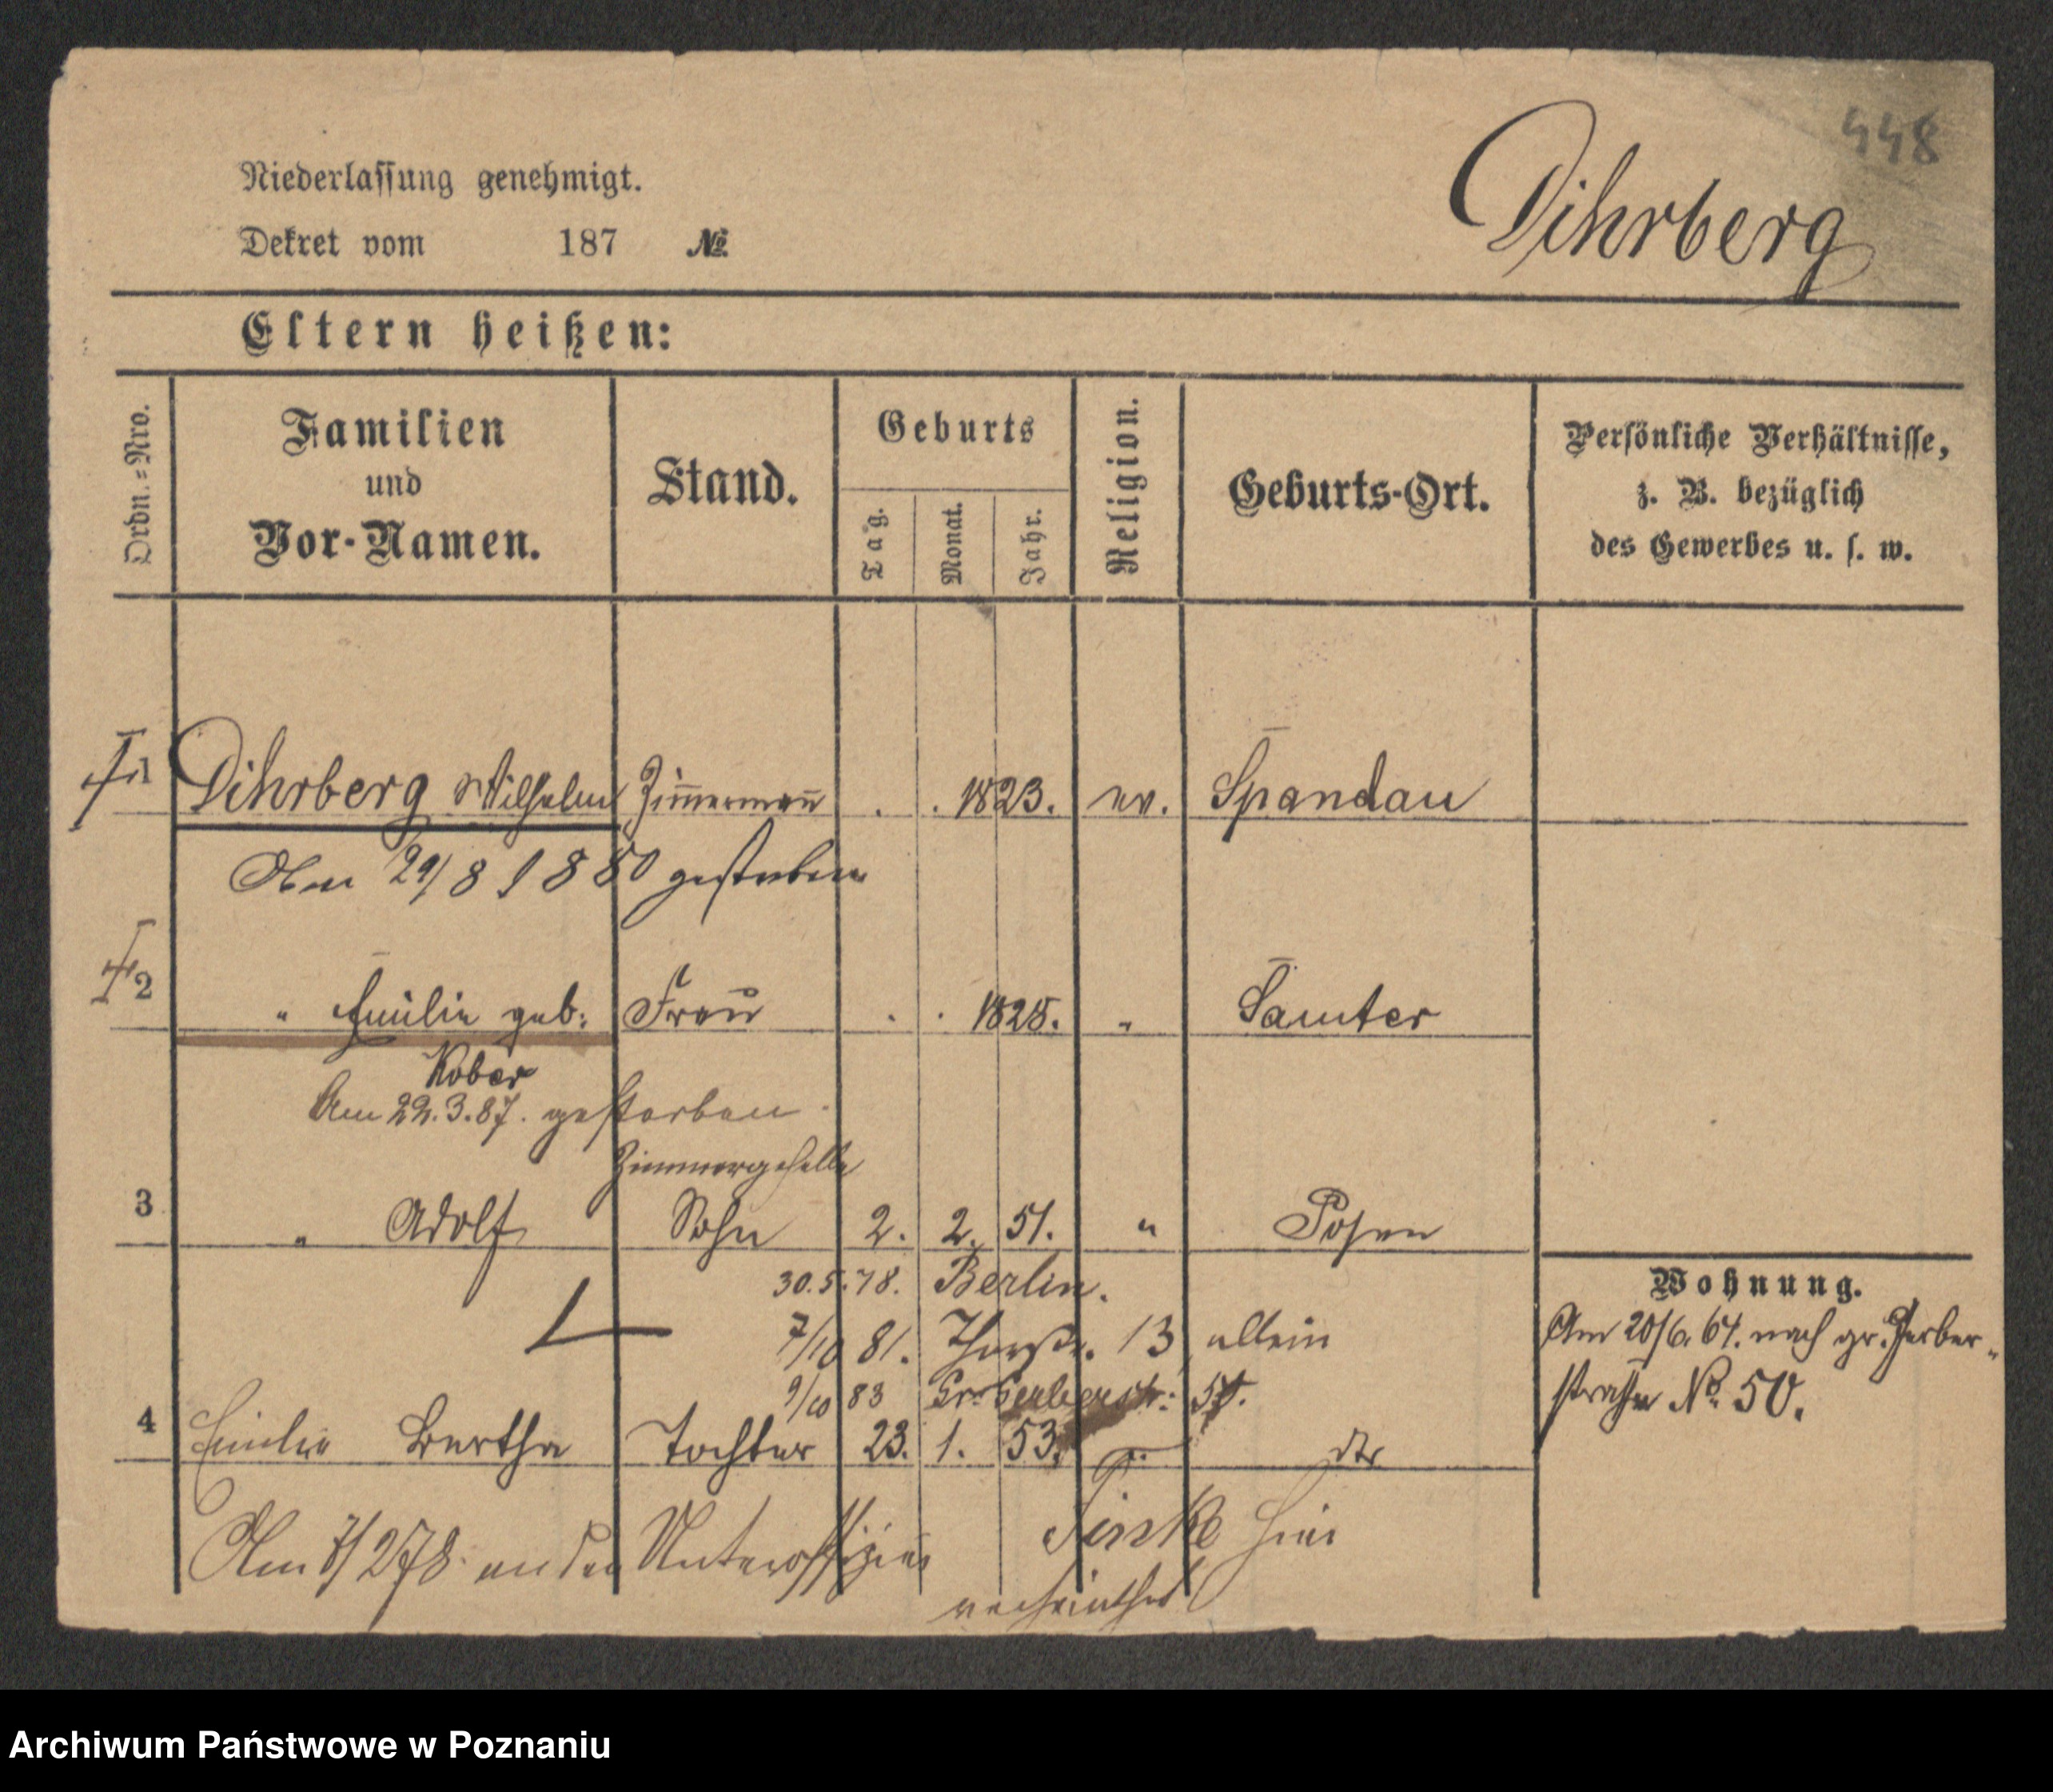 448
Dihrberg
Niederlassung genehmigt.
Dekret vom 187 №
Eltern heißen:
Ordn.=Nro.
Familien
und
Vor-Namen.
Stand.
Geburts
Tag.
Monat.
Jahr.
Religion.
Geburts-Ort.
Persönliche Verhältnisse,
z. B. bezüglich
des Gewerbes u. s. w.
1 Dihrberg Wilhelm Zim̄erman̄ . . 1823. ev. Spandau
Am 29/8 1880 gestorben
2 " Emilie geb: Frau . . 1828. " Samter
Kober
Am 22.3.87. gestorben.
Zimmergeselle
3 " Adolf Sohn 2. 2. 51. " Posen
30.5.78. Berlin.
7/10 81. Thorstr. 13 allein
9/10 83 Gr. Gerberstr:
4 Emilie Bertha Tochter 23. 1. 53. dto
Am 278 an den Unteroffizier hier
verheirathet
Wohnung.
Am 20/6. 64. nach gr. Gerber-
straße No. 50.
Archiwum Państwowe w Poznaniu